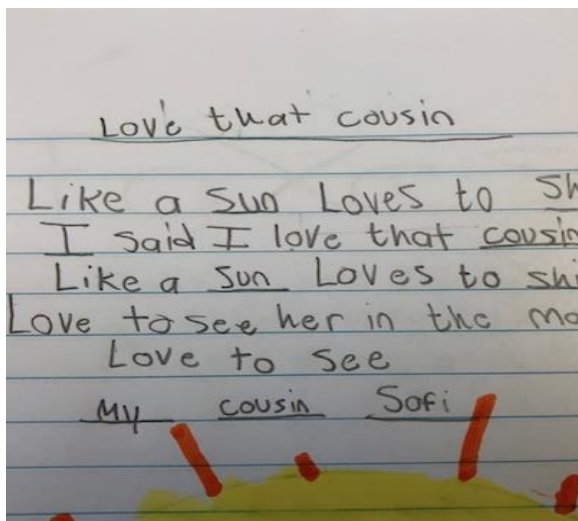 Love that cousin
Like a sun Loves to sh
I said I love that cousin
Like a sun Loves to shi
Love to see her in the mo
Love to see
My cousin Sofi